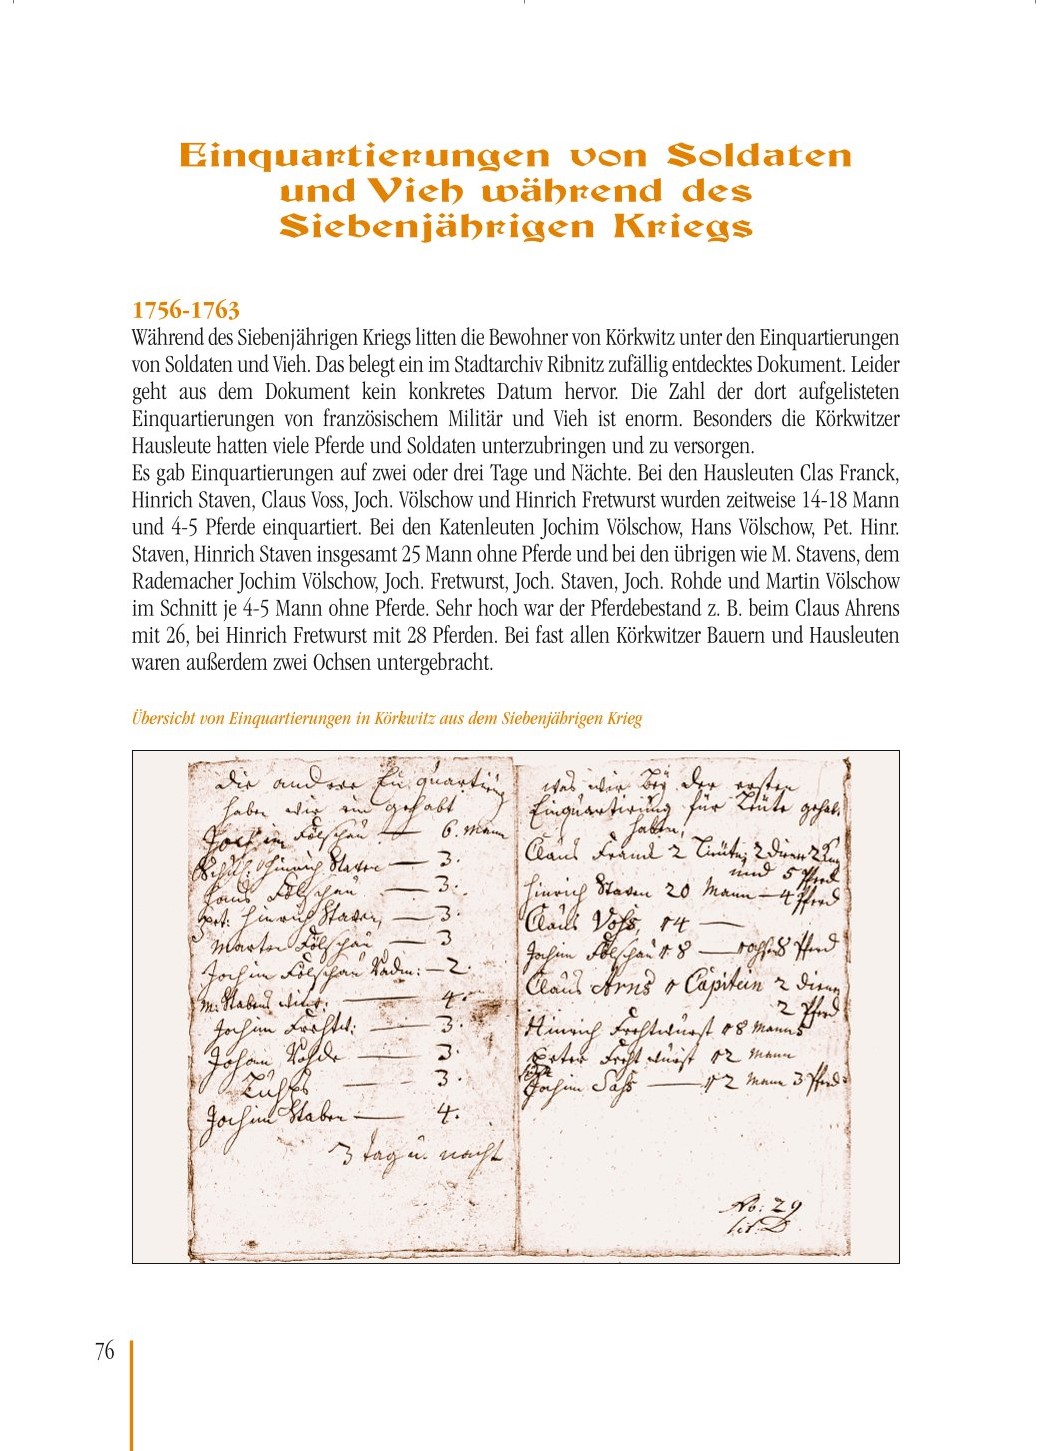 Einquartierungen von Soldaten
und Vieh während des
Siebenjährigen Kriegs
1756-1763
Während des Siebenjährigen Kriegs litten die Bewohner von Körkwitz unter den Einquartierungen
von Soldaten und Vieh. Das belegt ein im Stadtarchiv Ribnitz zufällig entdecktes Dokument. Leider
geht aus dem Dokument kein konkretes Datum hervor. Die Zahl der dort aufgelisteten
Einquartierungen von französischem Militär und Vieh ist enorm. Besonders die Körkwitzer
Hausleute hatten viele Pferde und Soldaten unterzubringen und zu versorgen.
Es gab Einquartierungen auf zwei oder drei Tage und Nächte. Bei den Hausleuten Clas Franck,
Hinrich Staven, Claus Voss, Joch. Völschow und Hinrich Fretwurst wurden zeitweise 14-18 Mann
und 4-5 Pferde einquartiert. Bei den Katenleuten Jochim Völschow, Hans Völschow, Pet. Hinr.
Staven, Hinrich Staven insgesamt 25 Mann ohne Pferde und bei den übrigen wie M. Stavens, dem
Rademacher Jochim Völschow, Joch. Fretwurst, Joch. Staven, Joch. Rohde und Martin Völschow
im Schnitt je 4-5 Mann ohne Pferde. Sehr hoch war der Pferdebestand z. B. beim Claus Ahrens
mit 26, bei Hinrich Fretwurst mit 28 Pferden. Bei fast allen Körkwitzer Bauern und Hausleuten
waren außerdem zwei Ochsen untergebracht.
Übersicht von Einquartierungen in Körkwitz aus dem Siebenjährigen Krieg
die andere Einquartirung
haben wir gehabt
Jochim Fölschau — 6. Mann
Hinrich Staven — 3.
Hans Fölschau — 3.
Pet: Hinrich Staven — 3.
Marten Fölschau — 3
Jochim Fölschau — 2.
M: Stabens — 4.
Jochim — 3.
Johan — 3.
— 3.
Jochim Staben — 4.
3 tag u. nacht
was wir bey der ersten
Einquartirung für Leute gehab.
haben,
Claus 2
und 5 Pferd
Hinrich Staven 20 Mann — 4 Pferd
Claus Voss, 14 —
Jochim Fölschau 18 — 8 Pferd
Claus Arns 1 Capitein 2
2 Pferd
Hinrich Frehtwurst 18 Mann
Peter Frehtwurst 12 Mann
Jochim Sass — 12 Mann 3 Pferd
No: 29
lit. D
76